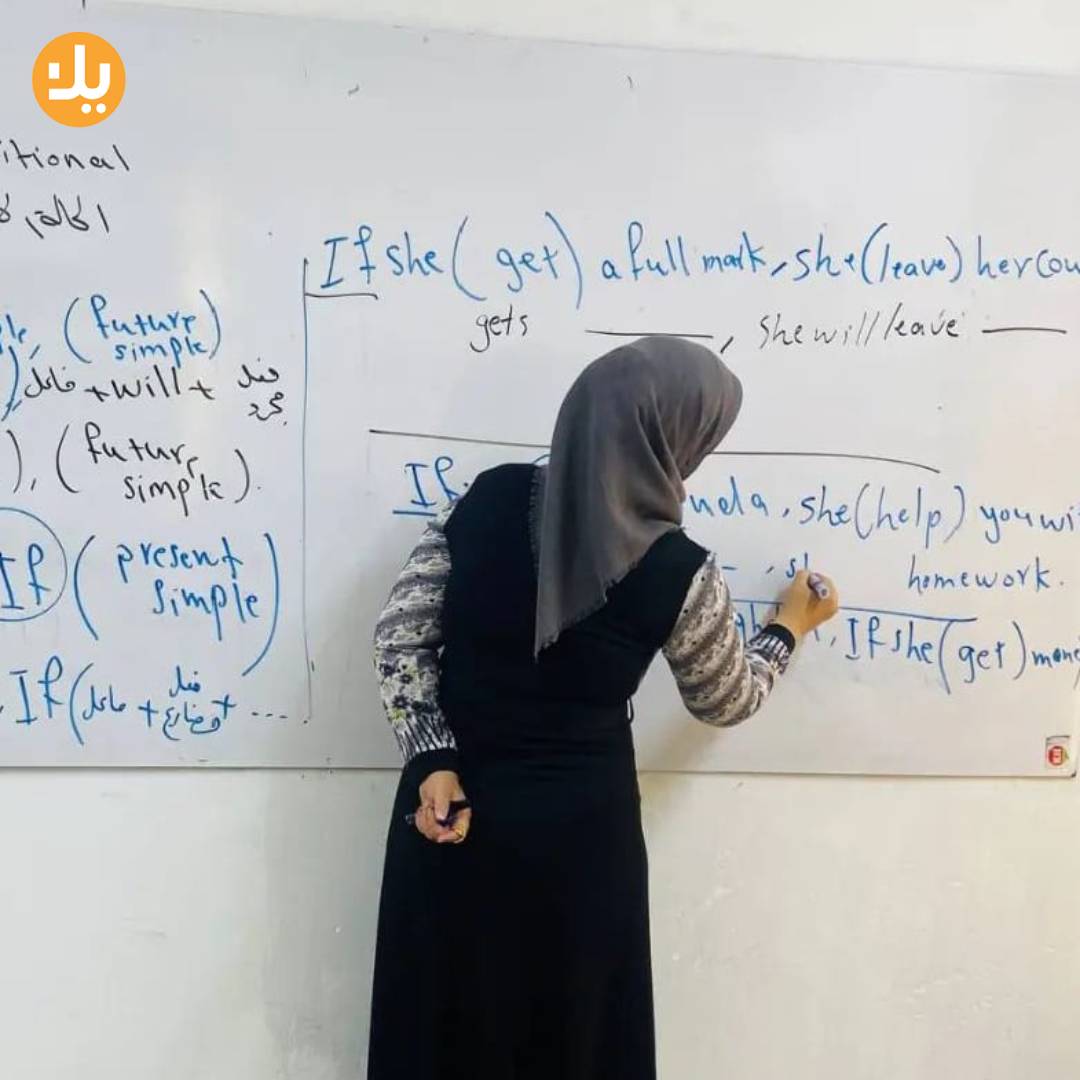 يلا
itional
الحالة الا
If she (get) a full mark, she (leave) her cou
gets ______, she will leave ______
(future simple)
فاعل + will + فعل مجرد
), (future simple).
If (present simple)
If (فاعل + فعل مضارع + ...
If , she (help) you wi
homework.
, If she (get) mone